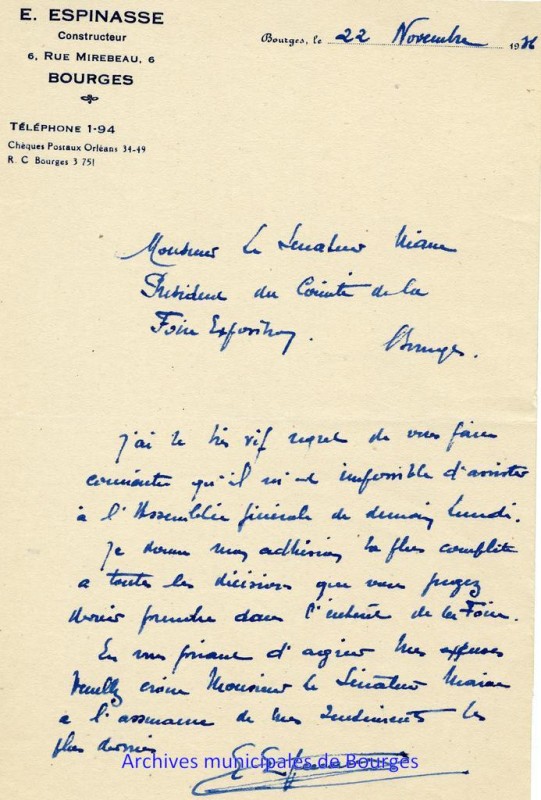 E. ESPINASSE
Constructeur
6, RUE MIREBEAU, 6
BOURGES
TÉLÉPHONE 1-94
Chèques Postaux Orléans 34-49
R. C Bourges 3 751
Bourges, le 22 Novembre 1936
Monsieur Le Senateur Maire
President du Comité de la
Foire Exposition.
Bourges.
J'ai le très vif regret de vous faire
connaitre qu'il m'est impossible d'assister
à l'Assemblée générale de demain Lundi.
Je donne mon adhésion la plus complète
a toutes les décisions que vous jugez
devoir prendre dans l'intérêt de la Foire.
En vous priant d'agréer mes excuses
Veuillez croire Monsieur le Sénateur Maire
a l'assurance de mes sentiments les
plus dévoués
E Espinasse
Archives municipales de Bourges